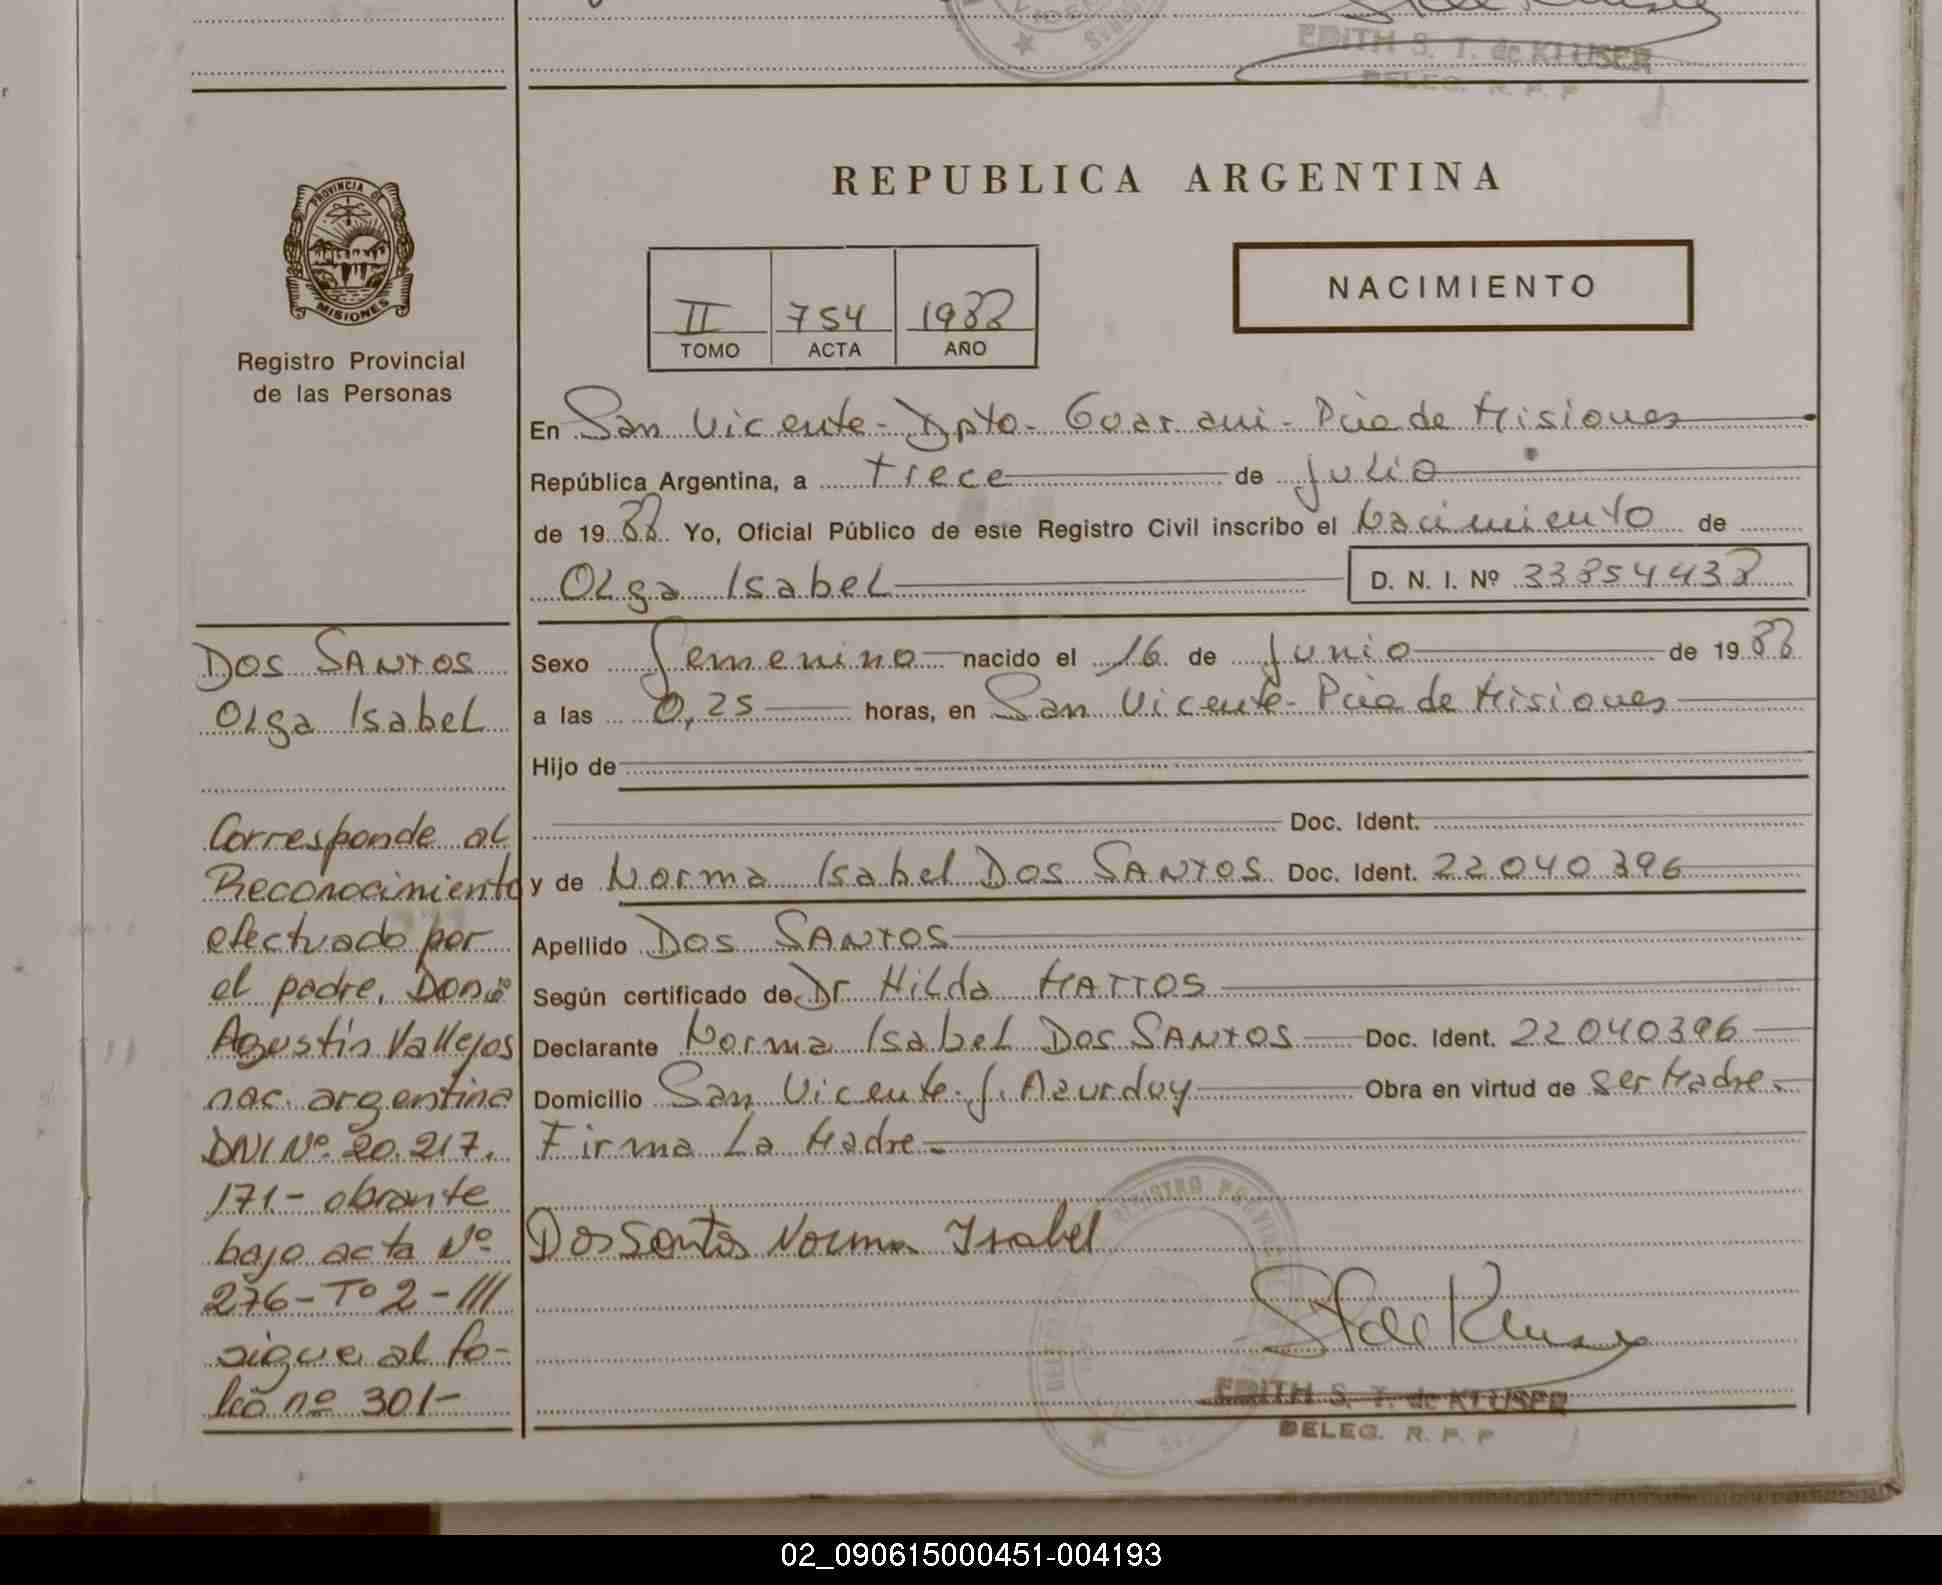 EDITH S. T. de KLUSER
DELEG. R. P. P
PROVINCIA DE
MISIONES
Registro Provincial
de las Personas
REPUBLICA ARGENTINA
II 754 1988
TOMO ACTA AÑO
NACIMIENTO
En San Vicente - Dpto - Guarani - Pcia de Misiones
República Argentina, a trece de julio
de 1988 Yo, Oficial Público de este Registro Civil inscribo el Nacimiento de
Olga Isabel D. N. I. Nº 33854438
Dos Santos
Olga Isabel
Corresponde al
Reconocimiento
efectuado por
el padre, Don
Agustín Vallejos
nac. argentina
DNI Nº 20.217.
171- obrante
bajo acta Nº
276- Tº 2 - III
sigue al fo-
lio nº 301-
Sexo femenino nacido el 16 de junio de 1988
a las 0,25 horas, en San Vicente - Pcia de Misiones
Hijo de
Doc. Ident.
y de Norma Isabel Dos Santos Doc. Ident. 22040396
Apellido Dos Santos
Según certificado de Dr Hilda Mattos
Declarante Norma Isabel Dos Santos Doc. Ident. 22040396
Domicilio San Vicente - J. Azurduy Obra en virtud de ser Madre.
Firma La Madre
Dos Santos Norma Isabel
EDITH S. T. de KLUSER
DELEG. R. P. P
02_090615000451-004193